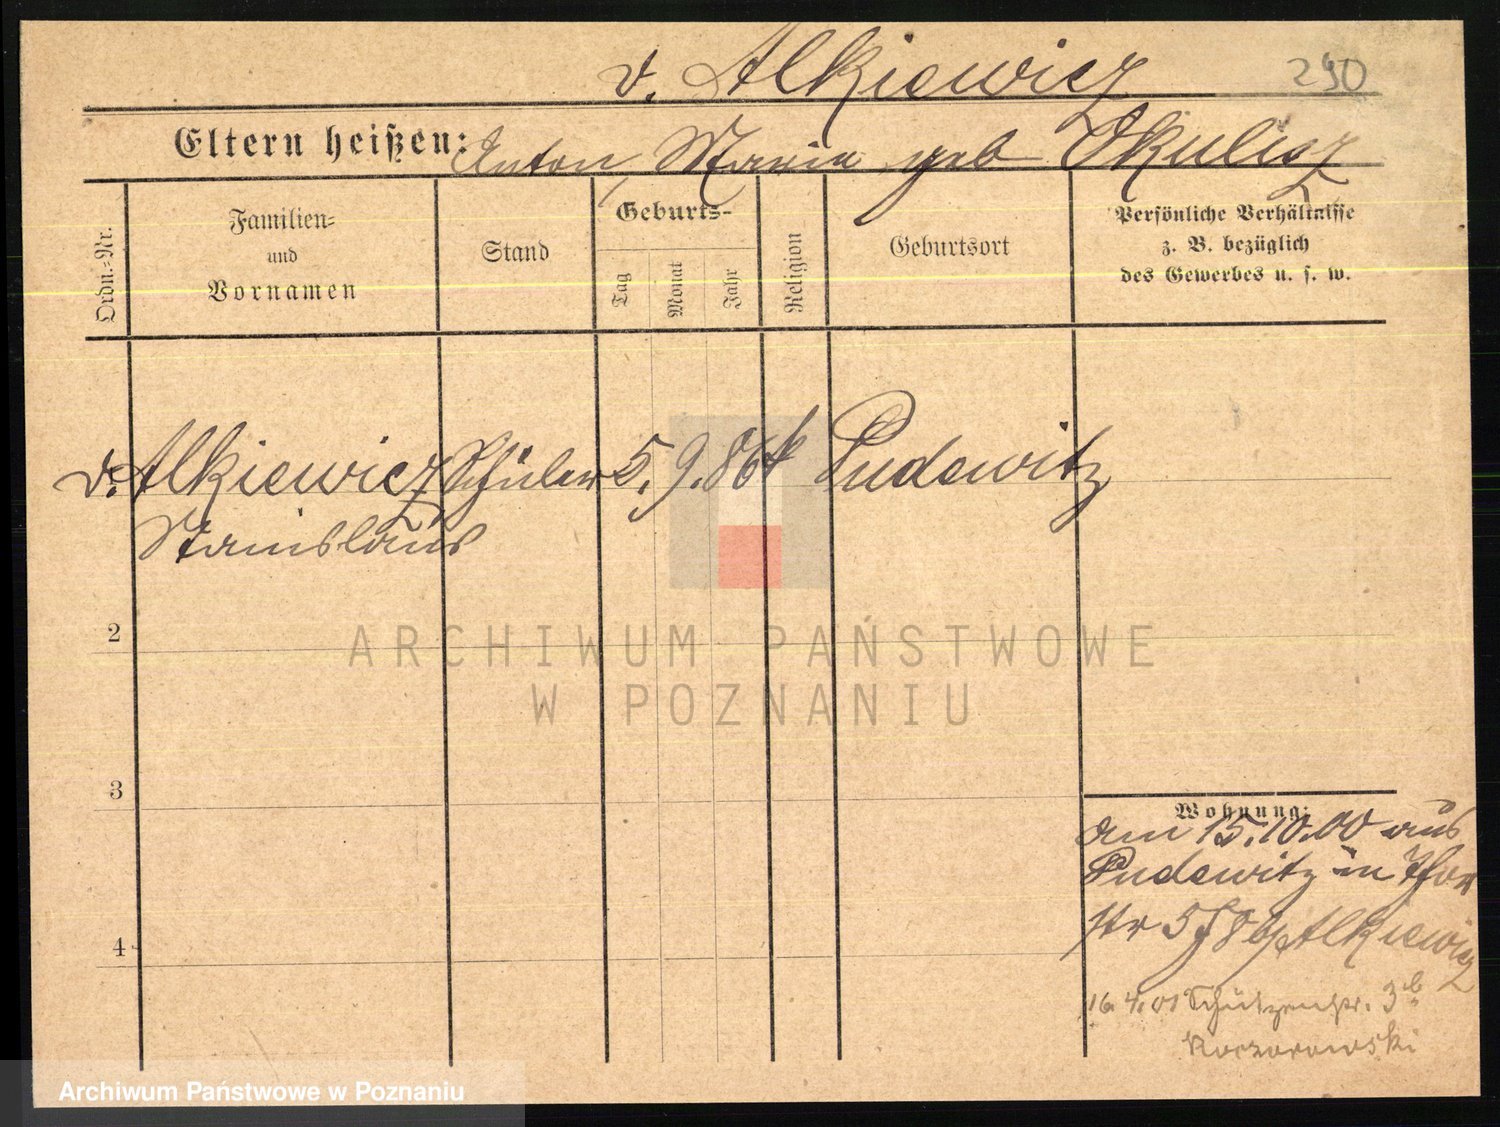 v. Alkiewicz 290
Eltern heißen: Anton, Maria geb Okulicz
Ordn.-Nr.
Familien-
und
Vornamen
Stand
Geburts-
Tag
Monat
Jahr
Religion
Geburtsort
Persönliche Verhältnisse
z. B. bezüglich
des Gewerbes u. s. w.
v. Alkiewicz Schüler 5. 9. 86 k Pudewitz
Stanislaus
2
3
4
Wohnung:
am 15.10.00 aus
Pudewitz in
str 5 Alkiewicz
16.4.01 Schützenstr. 3b
Koczorowski
ARCHIWUM PAŃSTWOWE
W POZNANIU
Archiwum Państwowe w Poznaniu